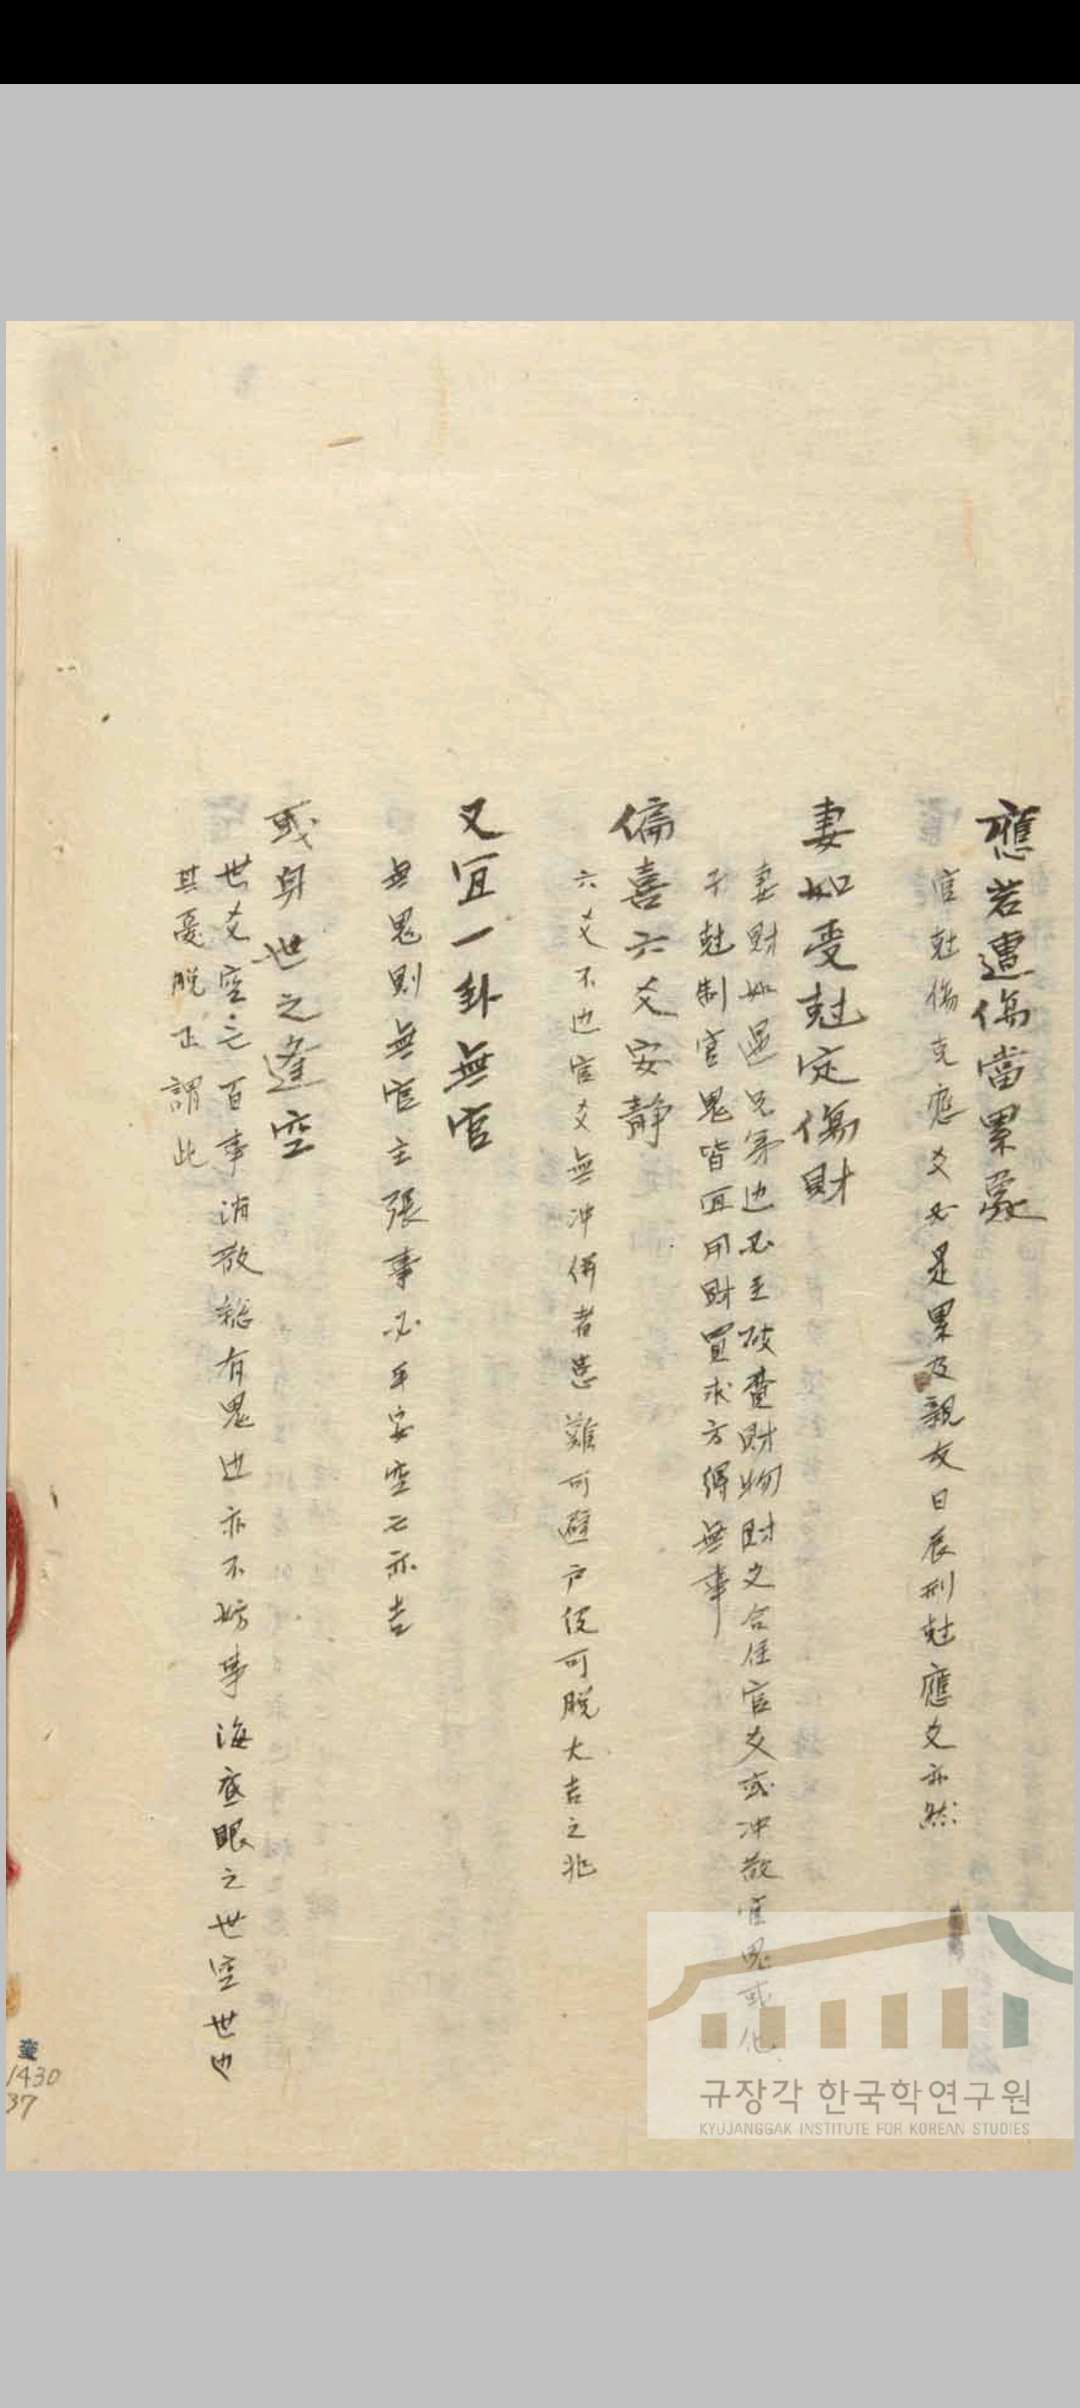 應若遭傷當累衆
官尅傷克應爻必是累及親友日辰刑尅應爻亦然
妻如受尅定傷財
妻財如逞兄弟也必主破費財物財爻合住官爻或冲散官鬼或化
子尅制官鬼皆宜用財買求方得無事
偏喜六爻安靜
六爻不也官爻無冲併者患難可避户役可脱大吉之兆
又宜一卦無官
無鬼則無官主張事必平安空亡亦吉
或身世之逢空
世爻空亡百事消散縂有鬼也亦不妨事海底眼之世空世也
其憂脱正謂此
奎
1430
37
규장각 한국학연구원
KYUJANGGAK INSTITUTE FOR KOREAN STUDIES